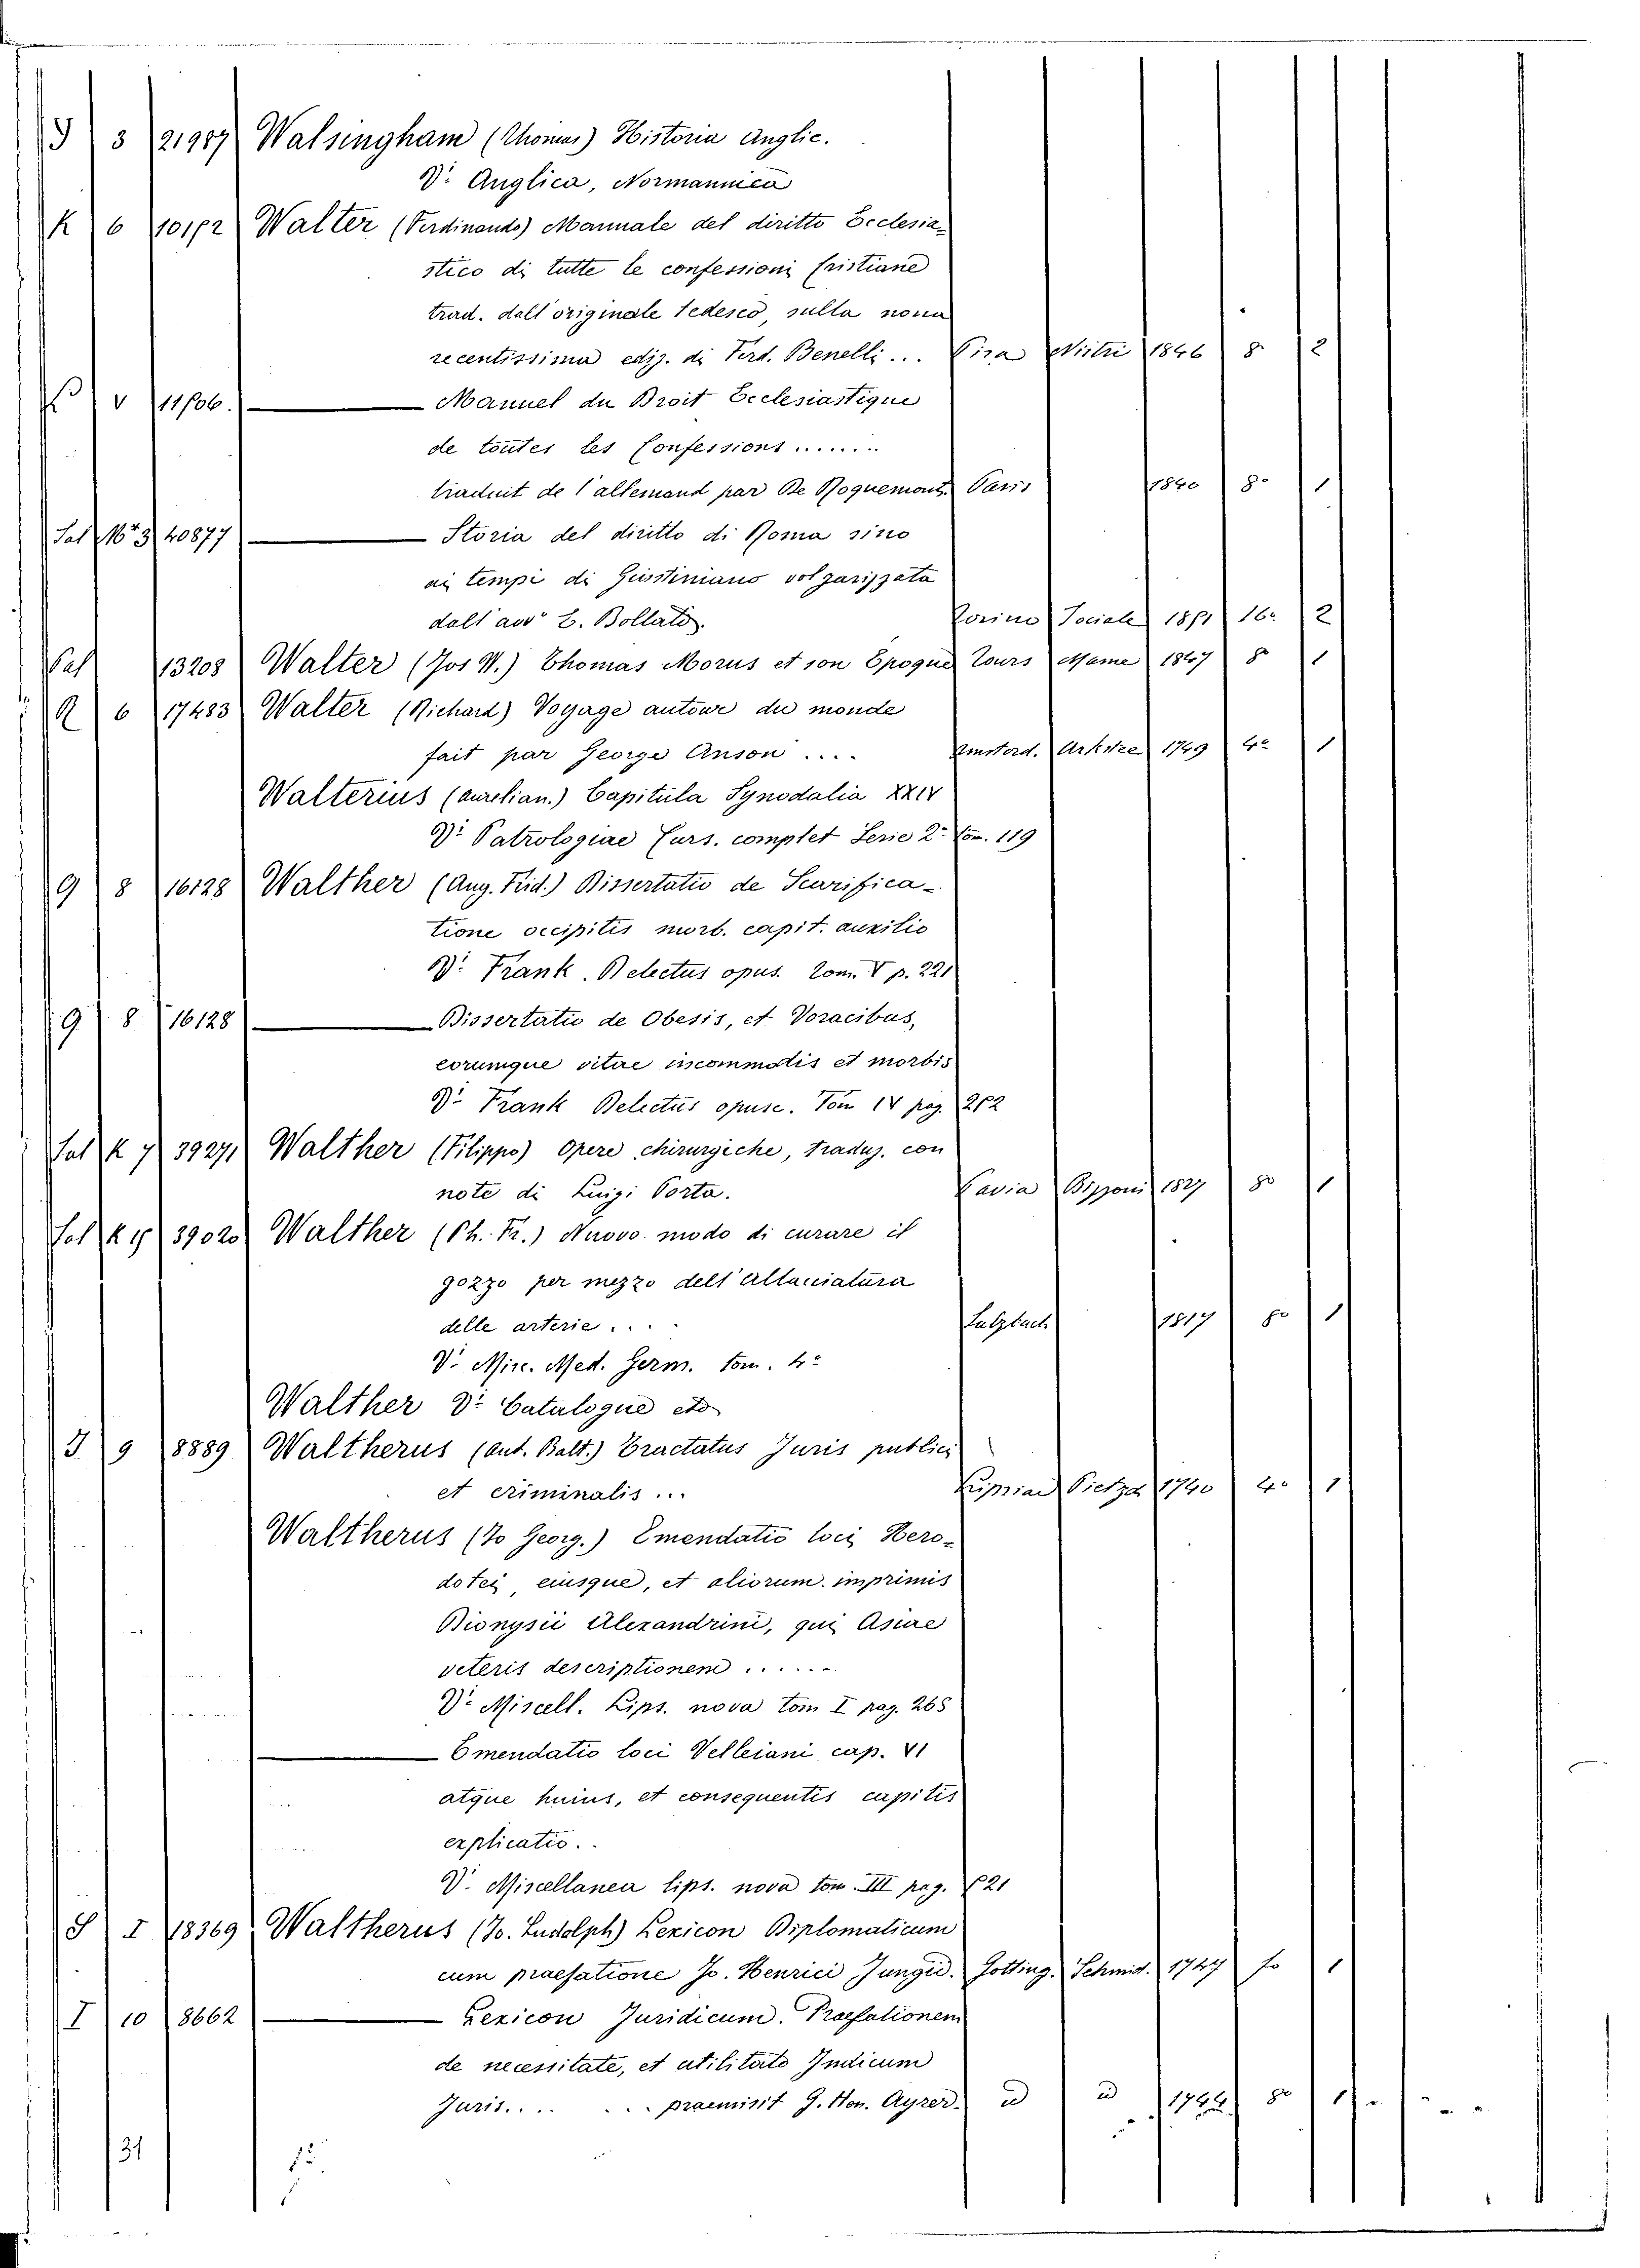 3 21987 Walsingham (Thomas) Historia Anglic.
V: Anglica, Normannica
K 6 Walter (Ferdinando) Manuale del diritto Ecclesia-
stico di tutte le confessioni cristiane
trad. dall'originale tedesco, sulla nona
recentissima ediz. di Ferd. Benelli... Pisa Nistri 1846 8° 2
V Manuel du Droit Ecclesiastique
de toutes les Confessions.......
traduit de l'allemand par De Roquemont. Paris 1840 8° 1
Sal N° 3 40877 Storia del diritto di Roma sino
ai tempi di Giustiniano volgarizzata
dall' avv° E. Bollati. Torino Sociale 16° 2
Sal 13208 Walter (Jos W.) Thomas Morus et son Epoque Tours Mame 1847 8° 1
R 6 17483 Walter (Richard) Voyage autour du monde
fait par George Anson .... Amsterd. Arkstee 1749 4° 1
Walterius (Aurelian.) Capitula Synodalia XXIV
V: Patrologiae Curs. complet Serie 2ª Tom. 119
9 8 16128 Walther (Aug. Frid.) Dissertatio de Scarifica-
tione occipitis morb. capit. auxilio
V: Frank. Delectus opus. Tom. V p. 221
9 8 16128 Dissertatio de Obesis, et Voracibus,
eorumque vitae incommodis et morbis
V: Frank Delectus opusc. Tom IV pag. 252
Sal K 7 39271 Walther (Filippo) Opere chirurgiche, traduz. con
note di Luigi Porta. Pavia Bizzoni 1827 8° 1
Sal K 39020 Walther (Ph. Fr.) Nuovo modo di curare il
gozzo per mezzo dell'allacciatura
delle arterie.... Sulzbach 1817 8° 1
V. Misc. Med. Germ. tom. 4°
Walther V: Catalogue etc
J 9 8889 Waltherus (Ant. Balt.) Tractatus Juris publici
et criminalis... Lipsiae 1740 4° 1
Waltherus (Jo Georg.) Emendatio loci Hero-
dotei, eiusque, et aliorum imprimis
Dionysii Alexandrini, qui Asiae
veteris descriptionem......
V: Miscell. Lips. nova tom I pag. 268
Emendatio loci Velleiani cap. VI
atque huius, et consequentis capitis
explicatio..
V. Miscellanea lips. nova tom. III pag. 521
S I 18369 Waltherus (Jo. Ludolph) Lexicon Diplomaticum
cum praefatione Jo. Henrici Jungii. Gotting. Schmid. 1747 fo 1
I 10 8662 Lexicon Juridicum. Praefationem
de necessitate, et utilitate Indicum
Juris.... ... praemisit G. Hen. Ayrer. id id 8° 1
31
15.